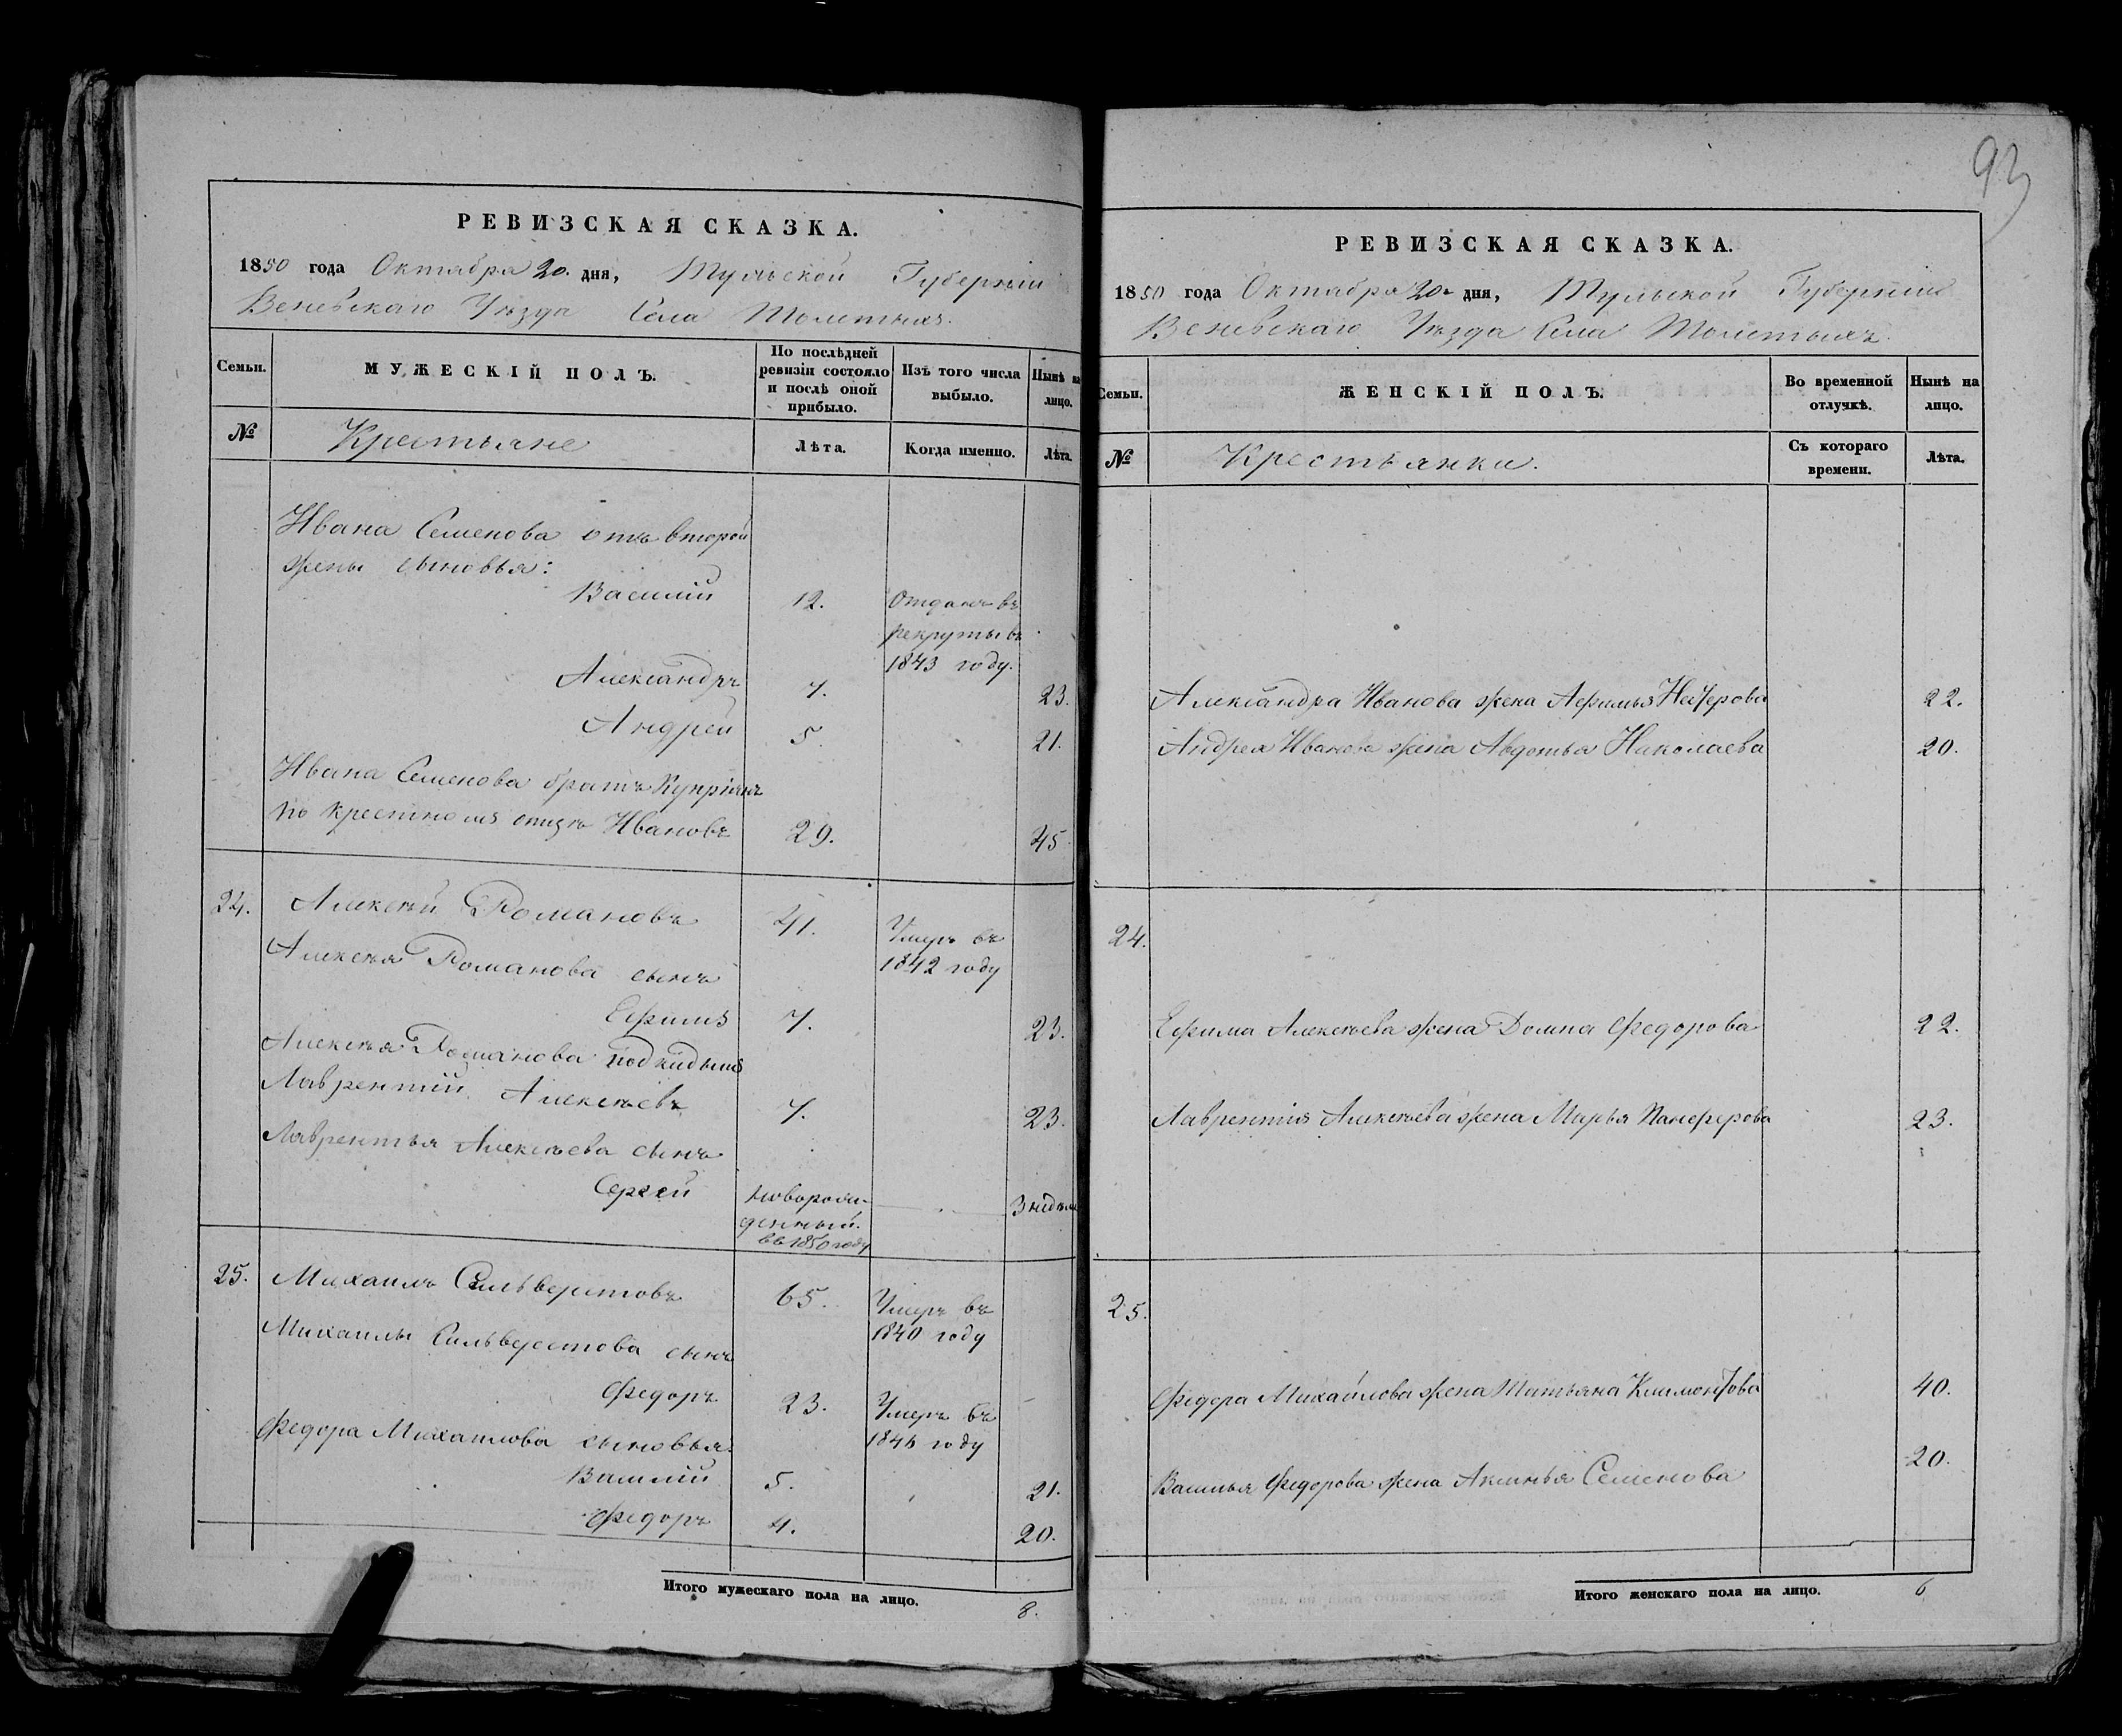 93
РЕВИЗСКАЯ СКАЗКА.
1850 года Октября 20. дня, Тульской Губерніи
Веневскаго Уѣзда Села Толстыхъ.
Семьи.
МУЖЕСКІЙ ПОЛЪ.
По послѣдней ревизіи состояло и послѣ оной прибыло.
Изъ того числа выбыло.
Нынѣ на лицо.
№
Крестьяне
Лѣта.
Когда именно.
Лѣта.
Ивана Семенова отъ второй
жены сыновья:
Василій 12. Отданъ въ
рекруты въ
1843 году.
Александръ 7. 23.
Андрей 5. 21.
Ивана Семенова братъ Купріянъ
по крестному отцу Ивановъ 29. 45.
24. Алексѣй Романовъ 41. Умеръ въ
1842 году
Алексѣя Романова сынъ
Ефимъ 7. 23.
Алексѣя Романова подкидышъ
Лаврентій Алексѣевъ 7. 23.
Лаврентья Алексѣева сынъ
Сергей новорож-
денный
въ 1850 году
3 недѣли
25. Михаилъ Сильверстовъ 65. Умеръ въ
1840 году
Михаилы Сильверстова сынъ
Федоръ 23. Умеръ въ
1846 году
Федора Михаилова сыновья:
Василій 5. 21.
Федоръ 4. 20.
Итого мужескаго пола на лицо. 8.
РЕВИЗСКАЯ СКАЗКА.
1850 года Октября 20 дня, Тульской Губерніи
Веневскаго Уѣзда Села Толстыхъ.
Семьи.
ЖЕНСКІЙ ПОЛЪ.
Во временной отлучкѣ.
Нынѣ на лицо.
№
Крестьянки.
Съ котораго времени.
Лѣта.
Александра Иванова жена Афимья 22.
Андрея Иванова жена Авдотья Николаева 20.
24.
Ефима Алексѣева жена Домна Федорова 22.
Лаврентія Алексѣева жена Марья Панферова 23.
25.
Федора Михайлова жена Татьяна Климонтова 40.
Василья Федорова жена Аксинья Семенова 20.
Итого женскаго пола на лицо. 6